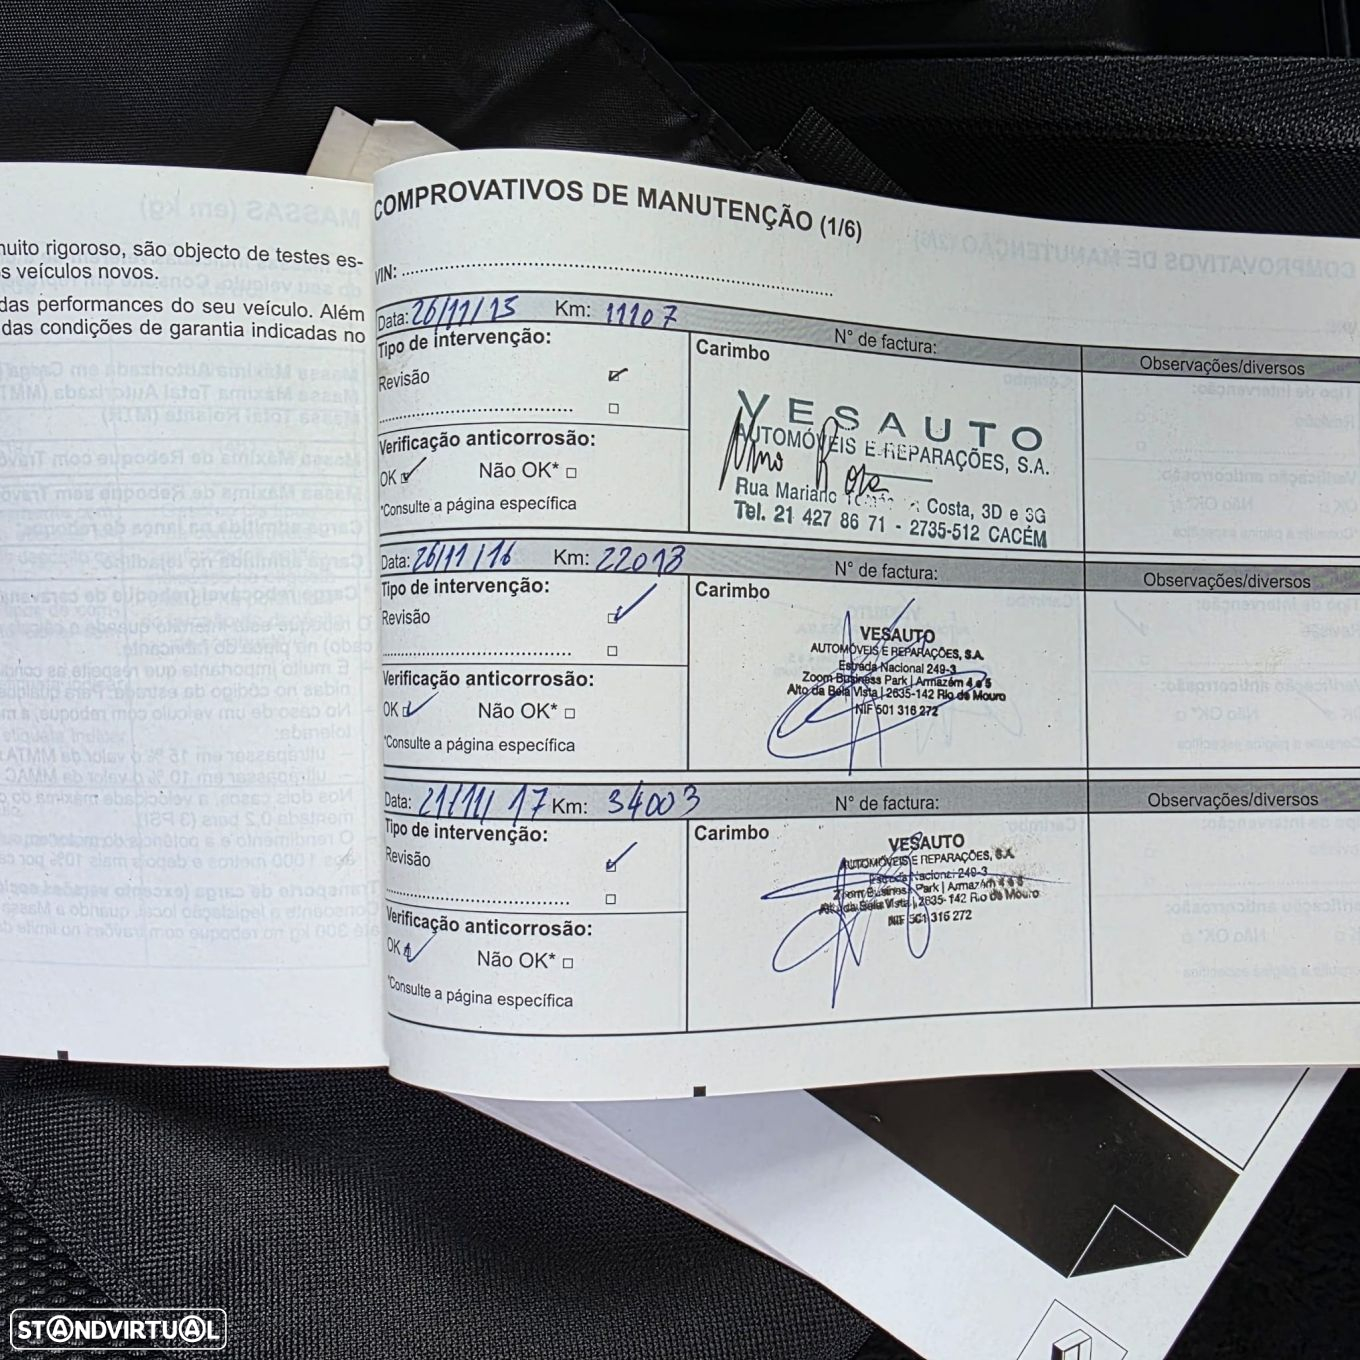 muito rigoroso, são objecto de testes es-
s veículos novos.
das performances do seu veículo. Além
das condições de garantia indicadas no
COMPROVATIVOS DE MANUTENÇÃO (1/6)
VIN:
Data: 26/11/15 Km: 11107 N° de factura:
Tipo de intervenção: Carimbo Observações/diversos
Revisão
VESAUTO
AUTOMÓVEIS E REPARAÇÕES, S.A.
Nuno Rosa
Rua Mariano Costa, 3D e 3G
Tel. 21 427 86 71 - 2735-512 CACÉM
Verificação anticorrosão:
OK Não OK*
*Consulte a página específica
Data: 26/11/16 Km: 22013 N° de factura:
Tipo de intervenção: Carimbo Observações/diversos
Revisão
VESAUTO
AUTOMÓVEIS E REPARAÇÕES, S.A.
Estrada Nacional 249-3
Zoom Business Park | Armazém 4 e 5
Alto da Bela Vista | 2635-142 Rio de Mouro
NIF 501 316 272
Verificação anticorrosão:
OK Não OK*
*Consulte a página específica
Data: 21/11/17 Km: 34003 N° de factura:
Tipo de intervenção: Carimbo Observações/diversos
Revisão
VESAUTO
AUTOMÓVEIS E REPARAÇÕES, S.A.
Estrada Nacional 249-3
Zoom Business Park | Armazém 4 e 5
Alto da Bela Vista | 2635-142 Rio de Mouro
NIF 501 316 272
Verificação anticorrosão:
OK Não OK*
*Consulte a página específica
STANDVIRTUAL